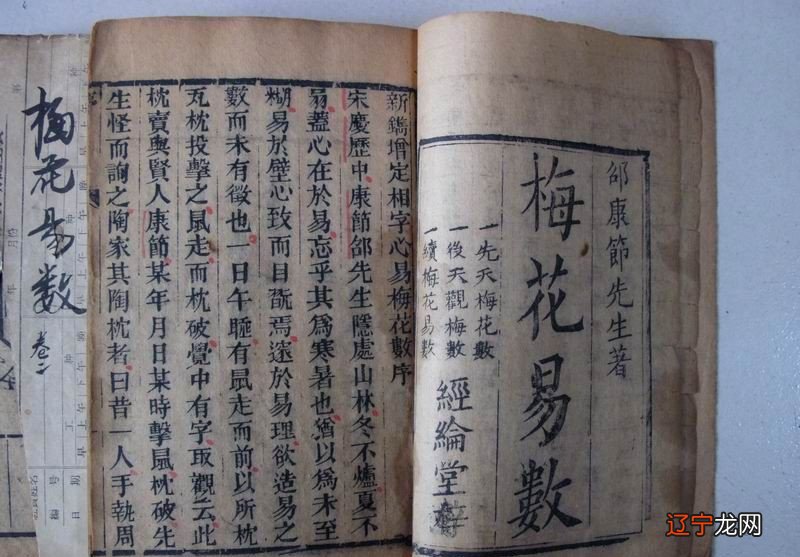 邵康節先生著
梅花易數
一先天梅花數
一後天觀梅數
一續梅花易數
經綸堂
新鐫增定相字心易梅花數序
宋慶歷中康節邵先生隱處山林冬不爐夏不
扇蓋心在於易忘乎其爲寒暑也猶以爲未至
糊易於壁心致而目翫焉邃於易理欲造易之
數而未有徵也一日午睡有鼠走而前以所枕
瓦枕投擊之鼠走而枕破覺中有字取觀云此
枕賣與賢人康節某年月日某時擊鼠枕破先
生怪而詢之陶家其陶枕者曰昔一人手執周
梅花易數 卷二
辽宁龙网